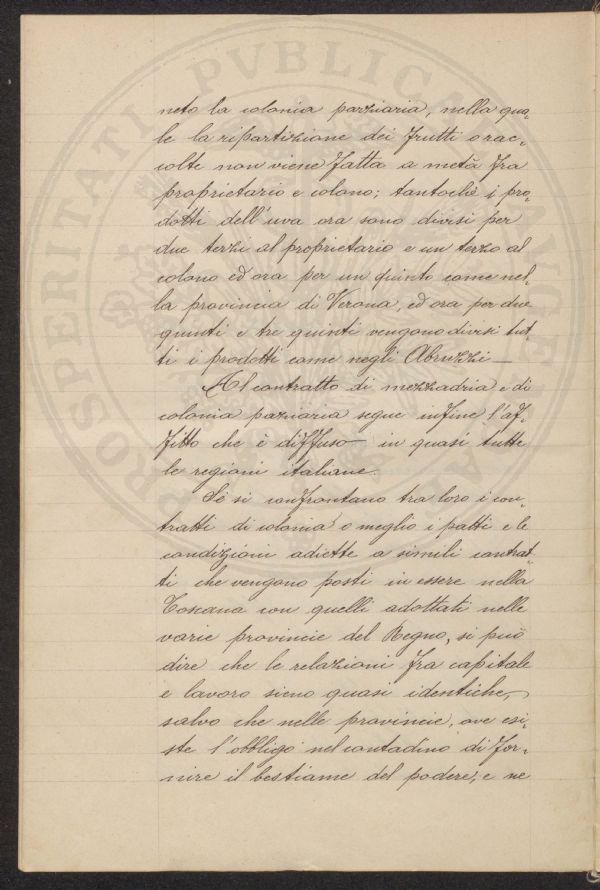 neto la colonia parziaria, nella qua-
le la ripartizione dei frutti o rac-
colte non viene fatta a metà fra
proprietario e colono; tantochè i pro-
dotti dell'uva ora sono divisi per
due terzi al proprietario e un terzo al
colono ed ora per un quinto come nel-
la provincia di Verona, ed ora per due
quinti e tre quinti vengono divisi tut-
ti i prodotti come negli Abruzzi—
Al contratto di mezzadria e di
colonia parziaria segue infine l'af-
fitto che è diffuso in quasi tutte
le regioni italiane.
Se si confrontano tra loro i con-
tratti di colonia o meglio i patti e le
condizioni adiette a simili contrat-
ti che vengono posti in essere nella
Toscana con quelli adottati nelle
varie provincie del Regno, si può
dire che le relazioni fra capitale
e lavoro sieno quasi identiche,
salvo che nelle provincie, ove esi-
ste l'obbligo nel contadino di for-
nire il bestiame del podere, e ne
PROSPERITATI PVBLICAE AVGENDAE